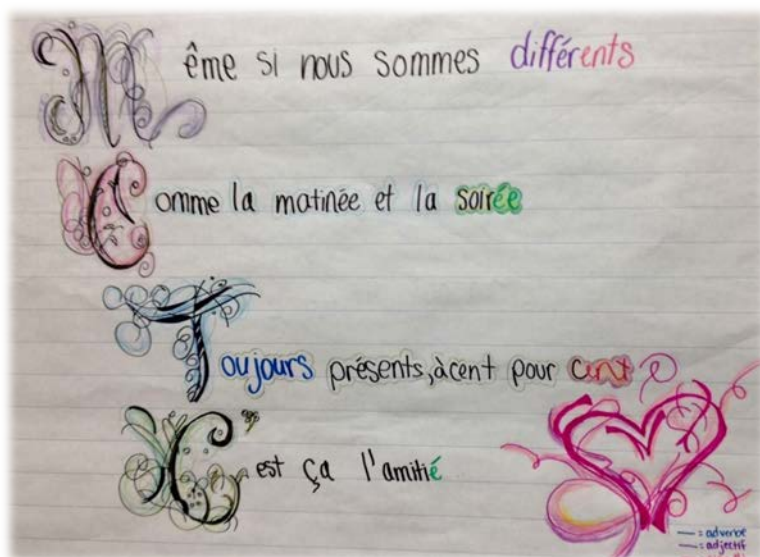 Même si nous sommes différents
Comme la matinée et la soirée
Toujours présents, à cent pour cent
C'est ça l'amitié
— = adverbe
— = adjectif